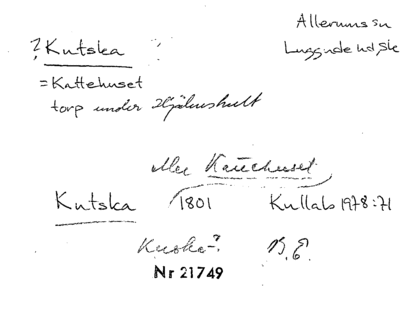 Allerums sn
? Kutska
Luggude hd, Sk
= Kattehuset
torp under Hjälmshult
eller Kattehuset
Kutska 1801 Kullab 1978:71
Kuska-? B.E.
Nr 21749